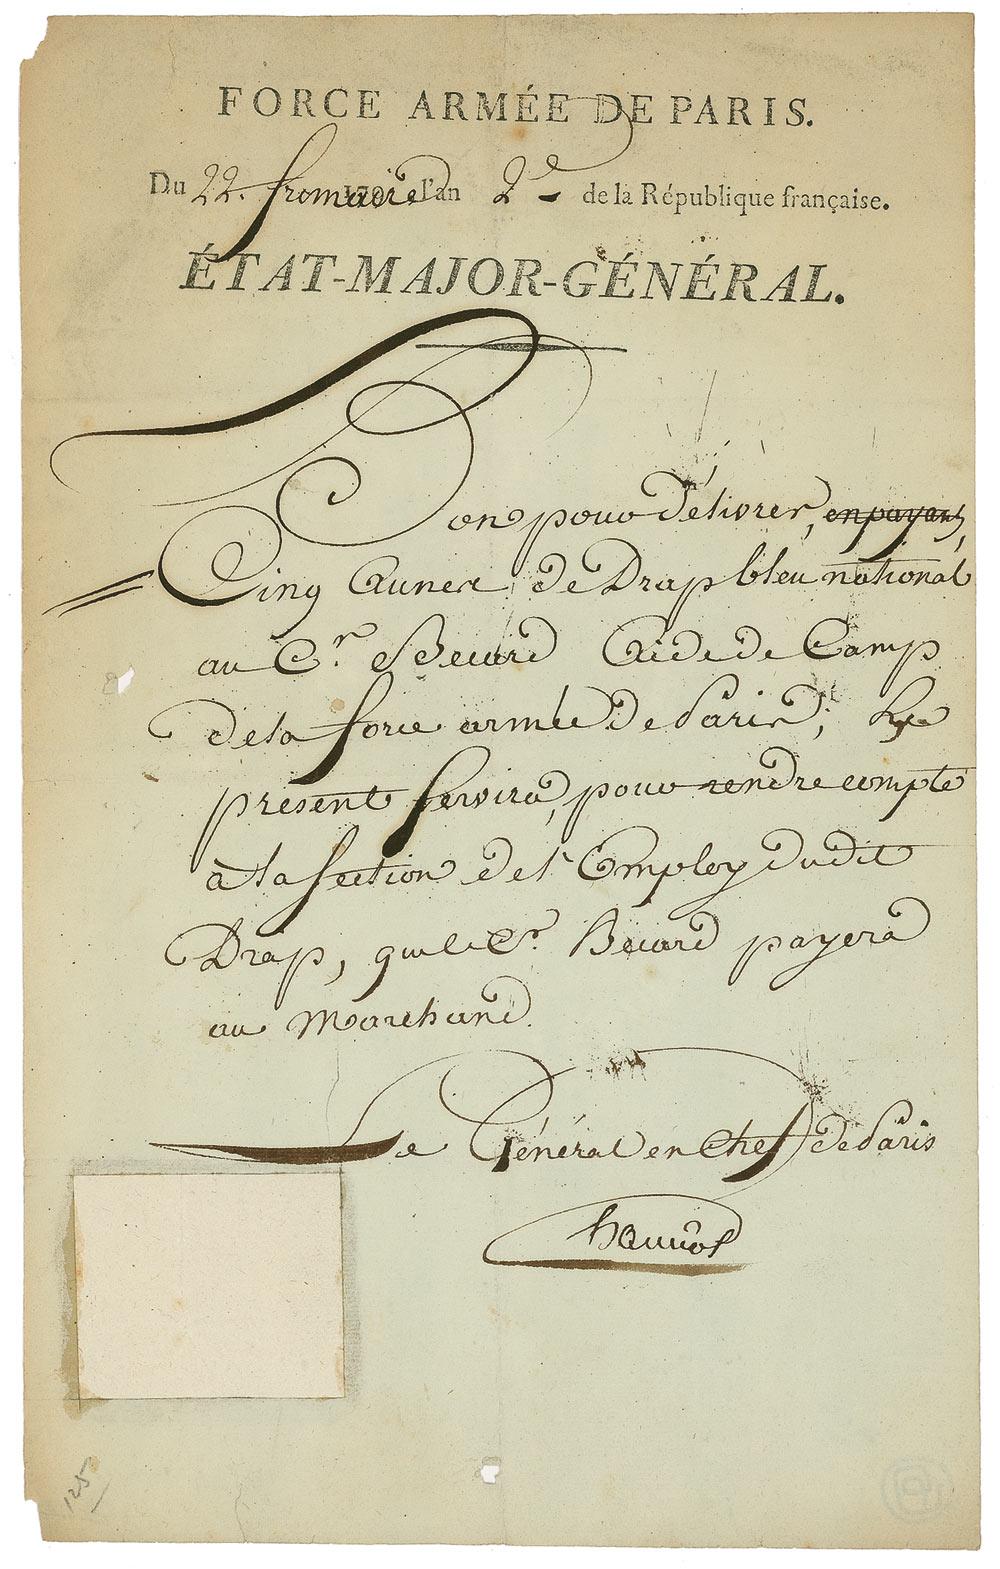 FORCE ARMÉE DE PARIS.
Du 22. fromaire l'an 2e de la République française.
ÉTAT-MAJOR-GÉNÉRAL.
Bon pour délivrer, en payant,
Cinq Aunes de Drap bleu national
au Cen. Becard Aide de Camp
de la force armée de Paris; Le
present servira, pour rendre compte
à la section de l'Employ dudit
Drap, que le Cen. Becard payera
au Marchand.
Le Général en chef de Paris
hanriot
125